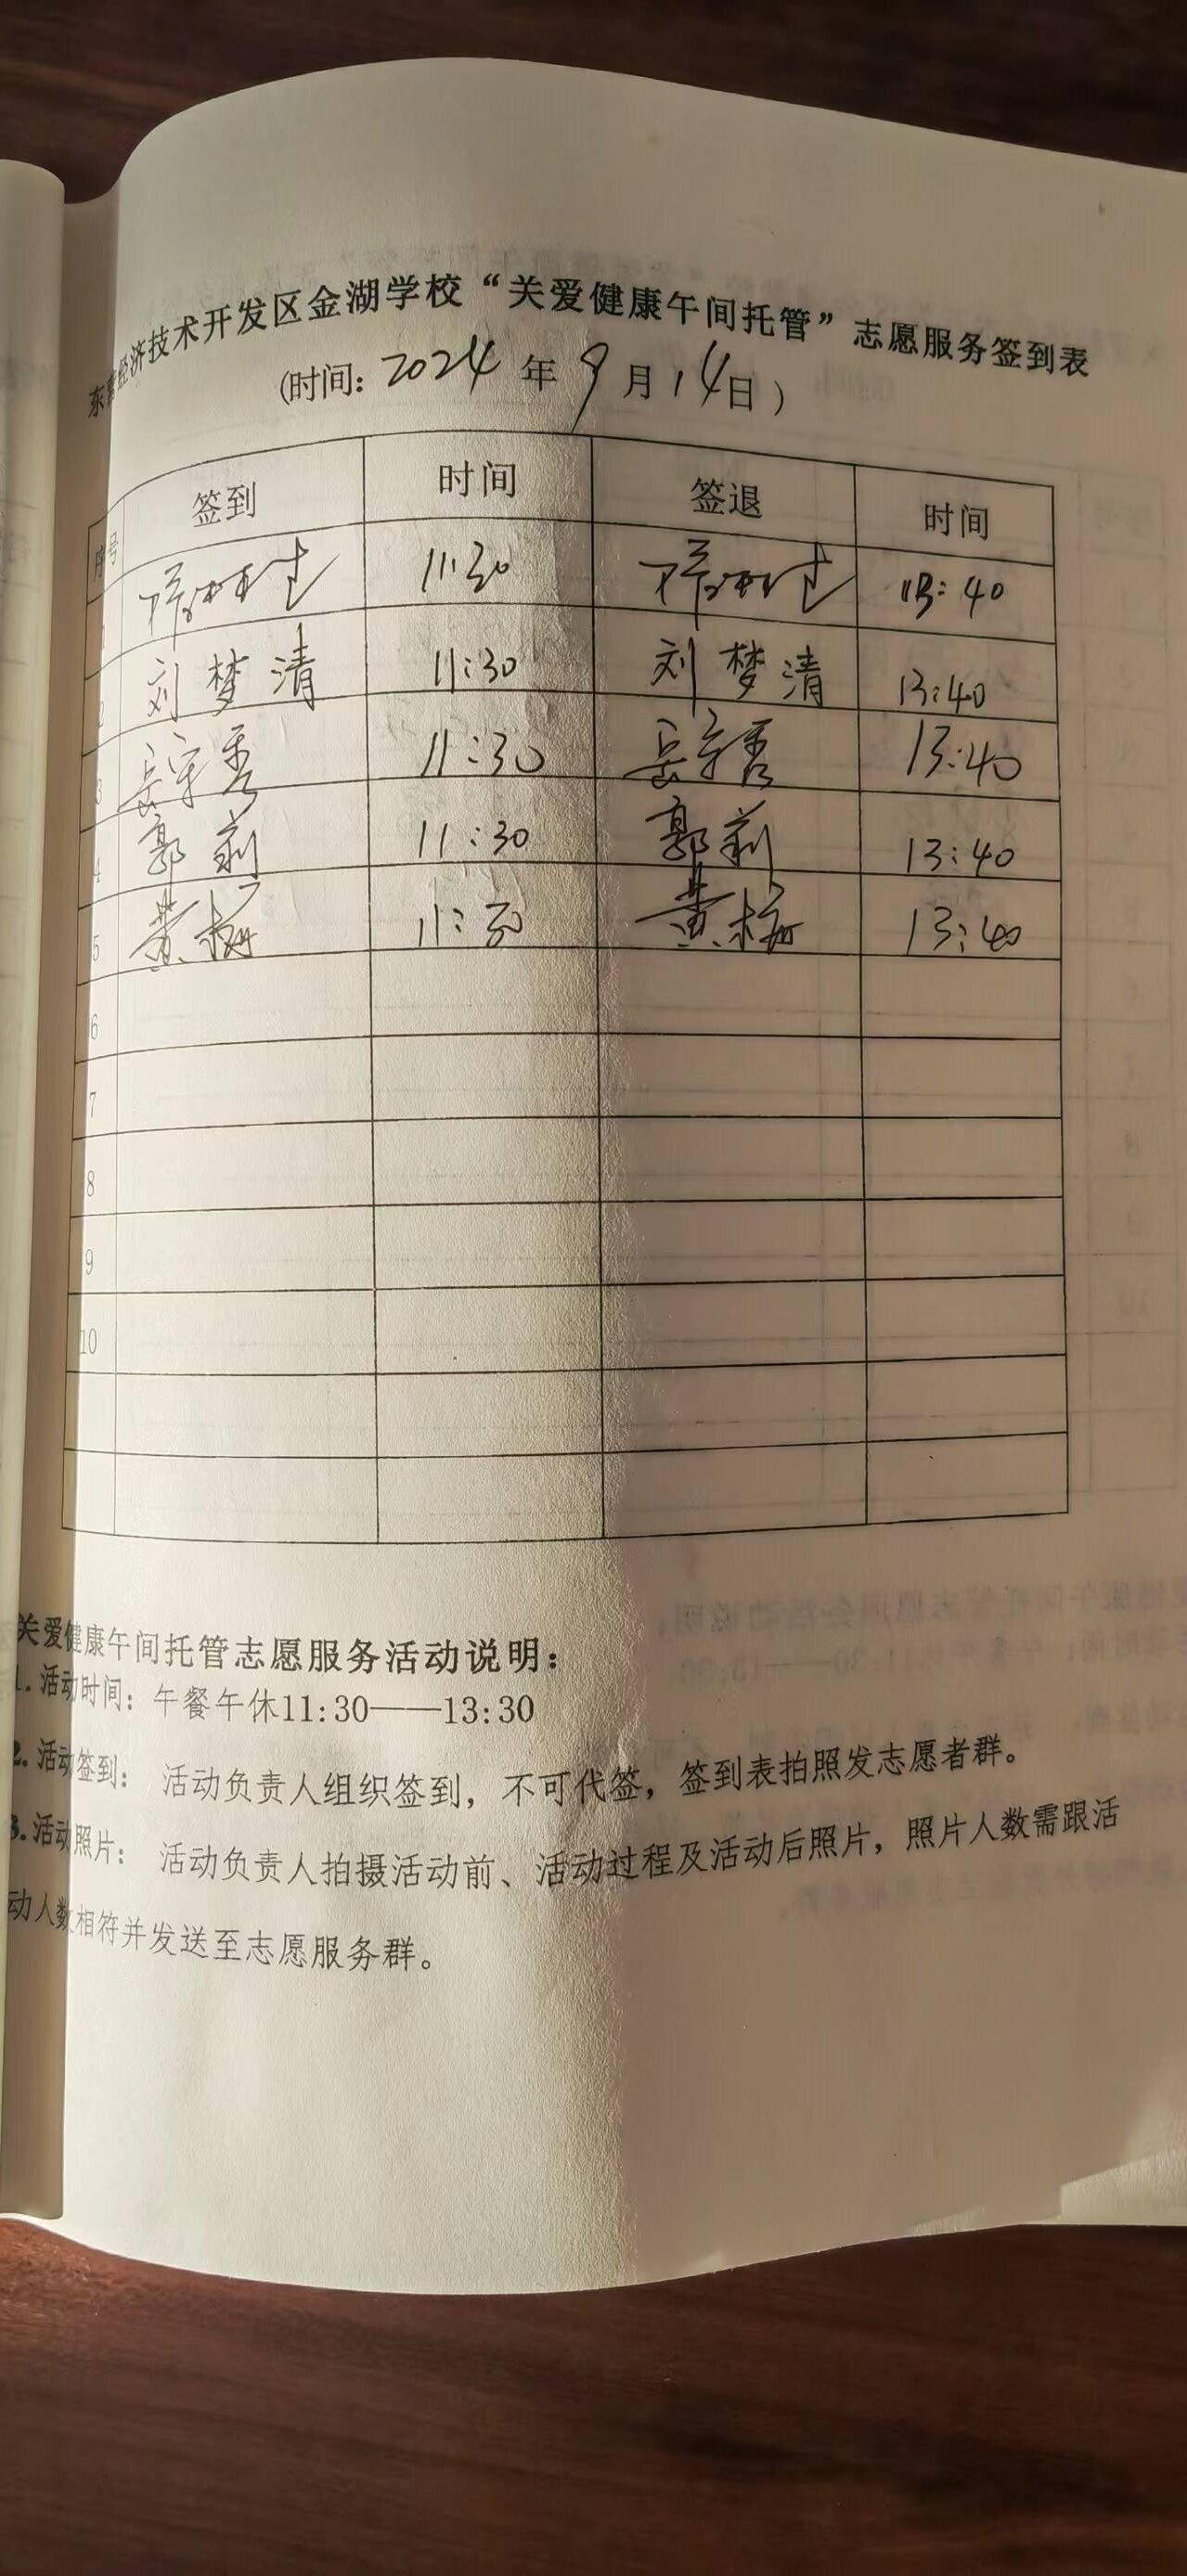 东营经济技术开发区金湖学校“关爱健康午间托管”志愿服务签到表
(时间: 2024 年 9 月 14日)
序号 签到 时间 签退 时间
11:30 13:40
2 刘梦清 11:30 刘梦清 13:40
3 岳守秀 11:30 岳守秀 13:40
4 郭莉 11:30 郭莉 13:40
5 黄梅 11:30 黄梅 13:40
6
7
8
9
10
关爱健康午间托管志愿服务活动说明:
1. 活动时间: 午餐午休11:30——13:30
2. 活动签到: 活动负责人组织签到，不可代签，签到表拍照发志愿者群。
3. 活动照片: 活动负责人拍摄活动前、活动过程及活动后照片，照片人数需跟活
动人数相符并发送至志愿服务群。